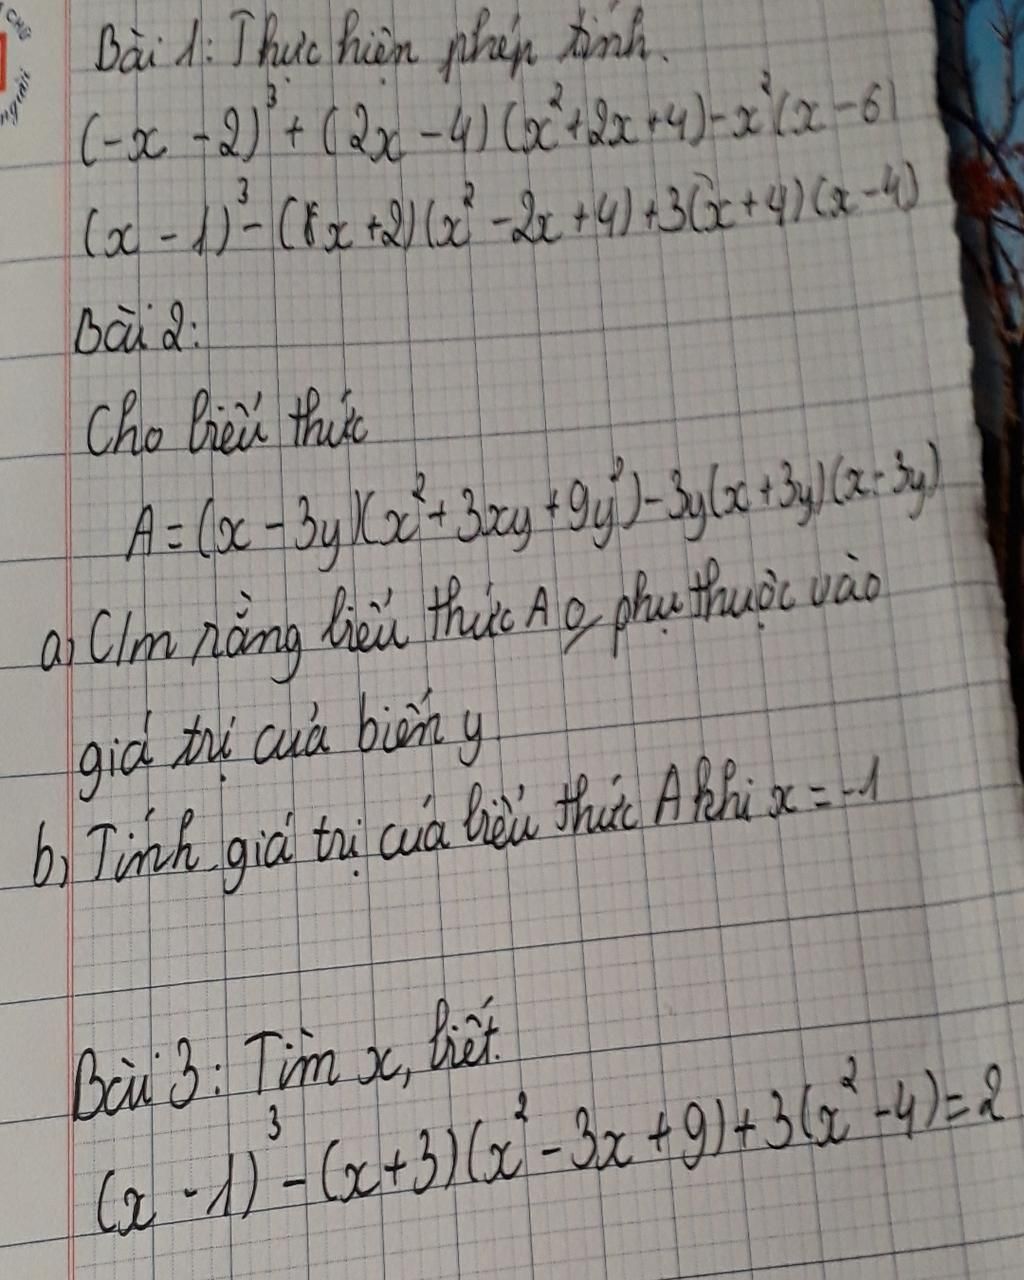 Bài 1: Thực hiện phép tính.
(-x - 2)³ + (2x - 4)(x² + 2x + 4) - x²(x - 6)
(x - 1)³ - (x + 2)(x² - 2x + 4) + 3(x + 4)(x - 4)
Bài 2:
Cho biểu thức
A = (x - 3y)(x² + 3xy + 9y²) - 3y(x + 3y)(x - 3y)
a) C/m rằng biểu thức A o phụ thuộc vào
giá trị của biến y
b) Tính giá trị của biểu thức A khi x = -1
Bài 3: Tìm x, biết.
(x - 1)³ - (x + 3)(x² - 3x + 9) + 3(x² - 4) = 2